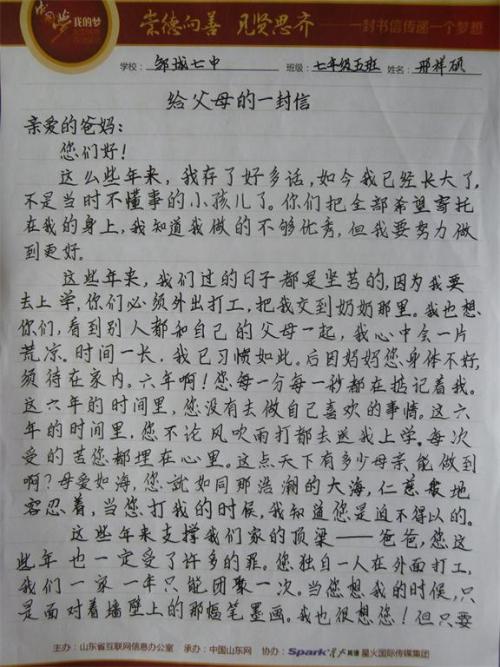 中国梦 我的梦
崇德向善 见贤思齐 —— 一封书信传递一个梦想
学校: 邹城七中 班级: 七年级五班 姓名: 邢祥硕
给父母的一封信
亲爱的爸妈:
您们好!
这么些年来，我存了好多话，如今我已经长大了，
不是当时不懂事的小孩儿了。你们把全部希望寄托
在我的身上，我知道我做的不够优秀，但我要努力做
到更好。
这些年来，我们过的日子都是坚苦的，因为我要
去上学，你们必须外出打工，把我交到奶奶那里。我也想
你们，看到别人都和自己的父母一起，我心中会一片
荒凉。时间一长，我已习惯如此。后因妈妈您身体不好，
须待在家内。六年啊！您每一分每一秒都在掂记着我。
这六年的时间里，您没有去做自己喜欢的事情。这六
年的时间里，您不论风吹雨打都去送我上学。每次
受的苦您都埋在心里。这点天下有多少母亲能做到
啊？母爱如海，您就如同那浩瀚的大海，仁慈般地
容忍着，当您打我的时候，我知道您是迫不得以的。
这些年来支撑我们家的顶梁——爸爸，您这
些年也一定受了许多的罪。您独自一人在外面打工，
我们一家一年只能团聚一次。当您想我的时候，只
是面对着墙壁上的那幅笔墨画。我也很想您！但只要
主办：山东省互联网信息办公室 承办：中国山东网 协办：Spark 星火英语 星火国际传媒集团